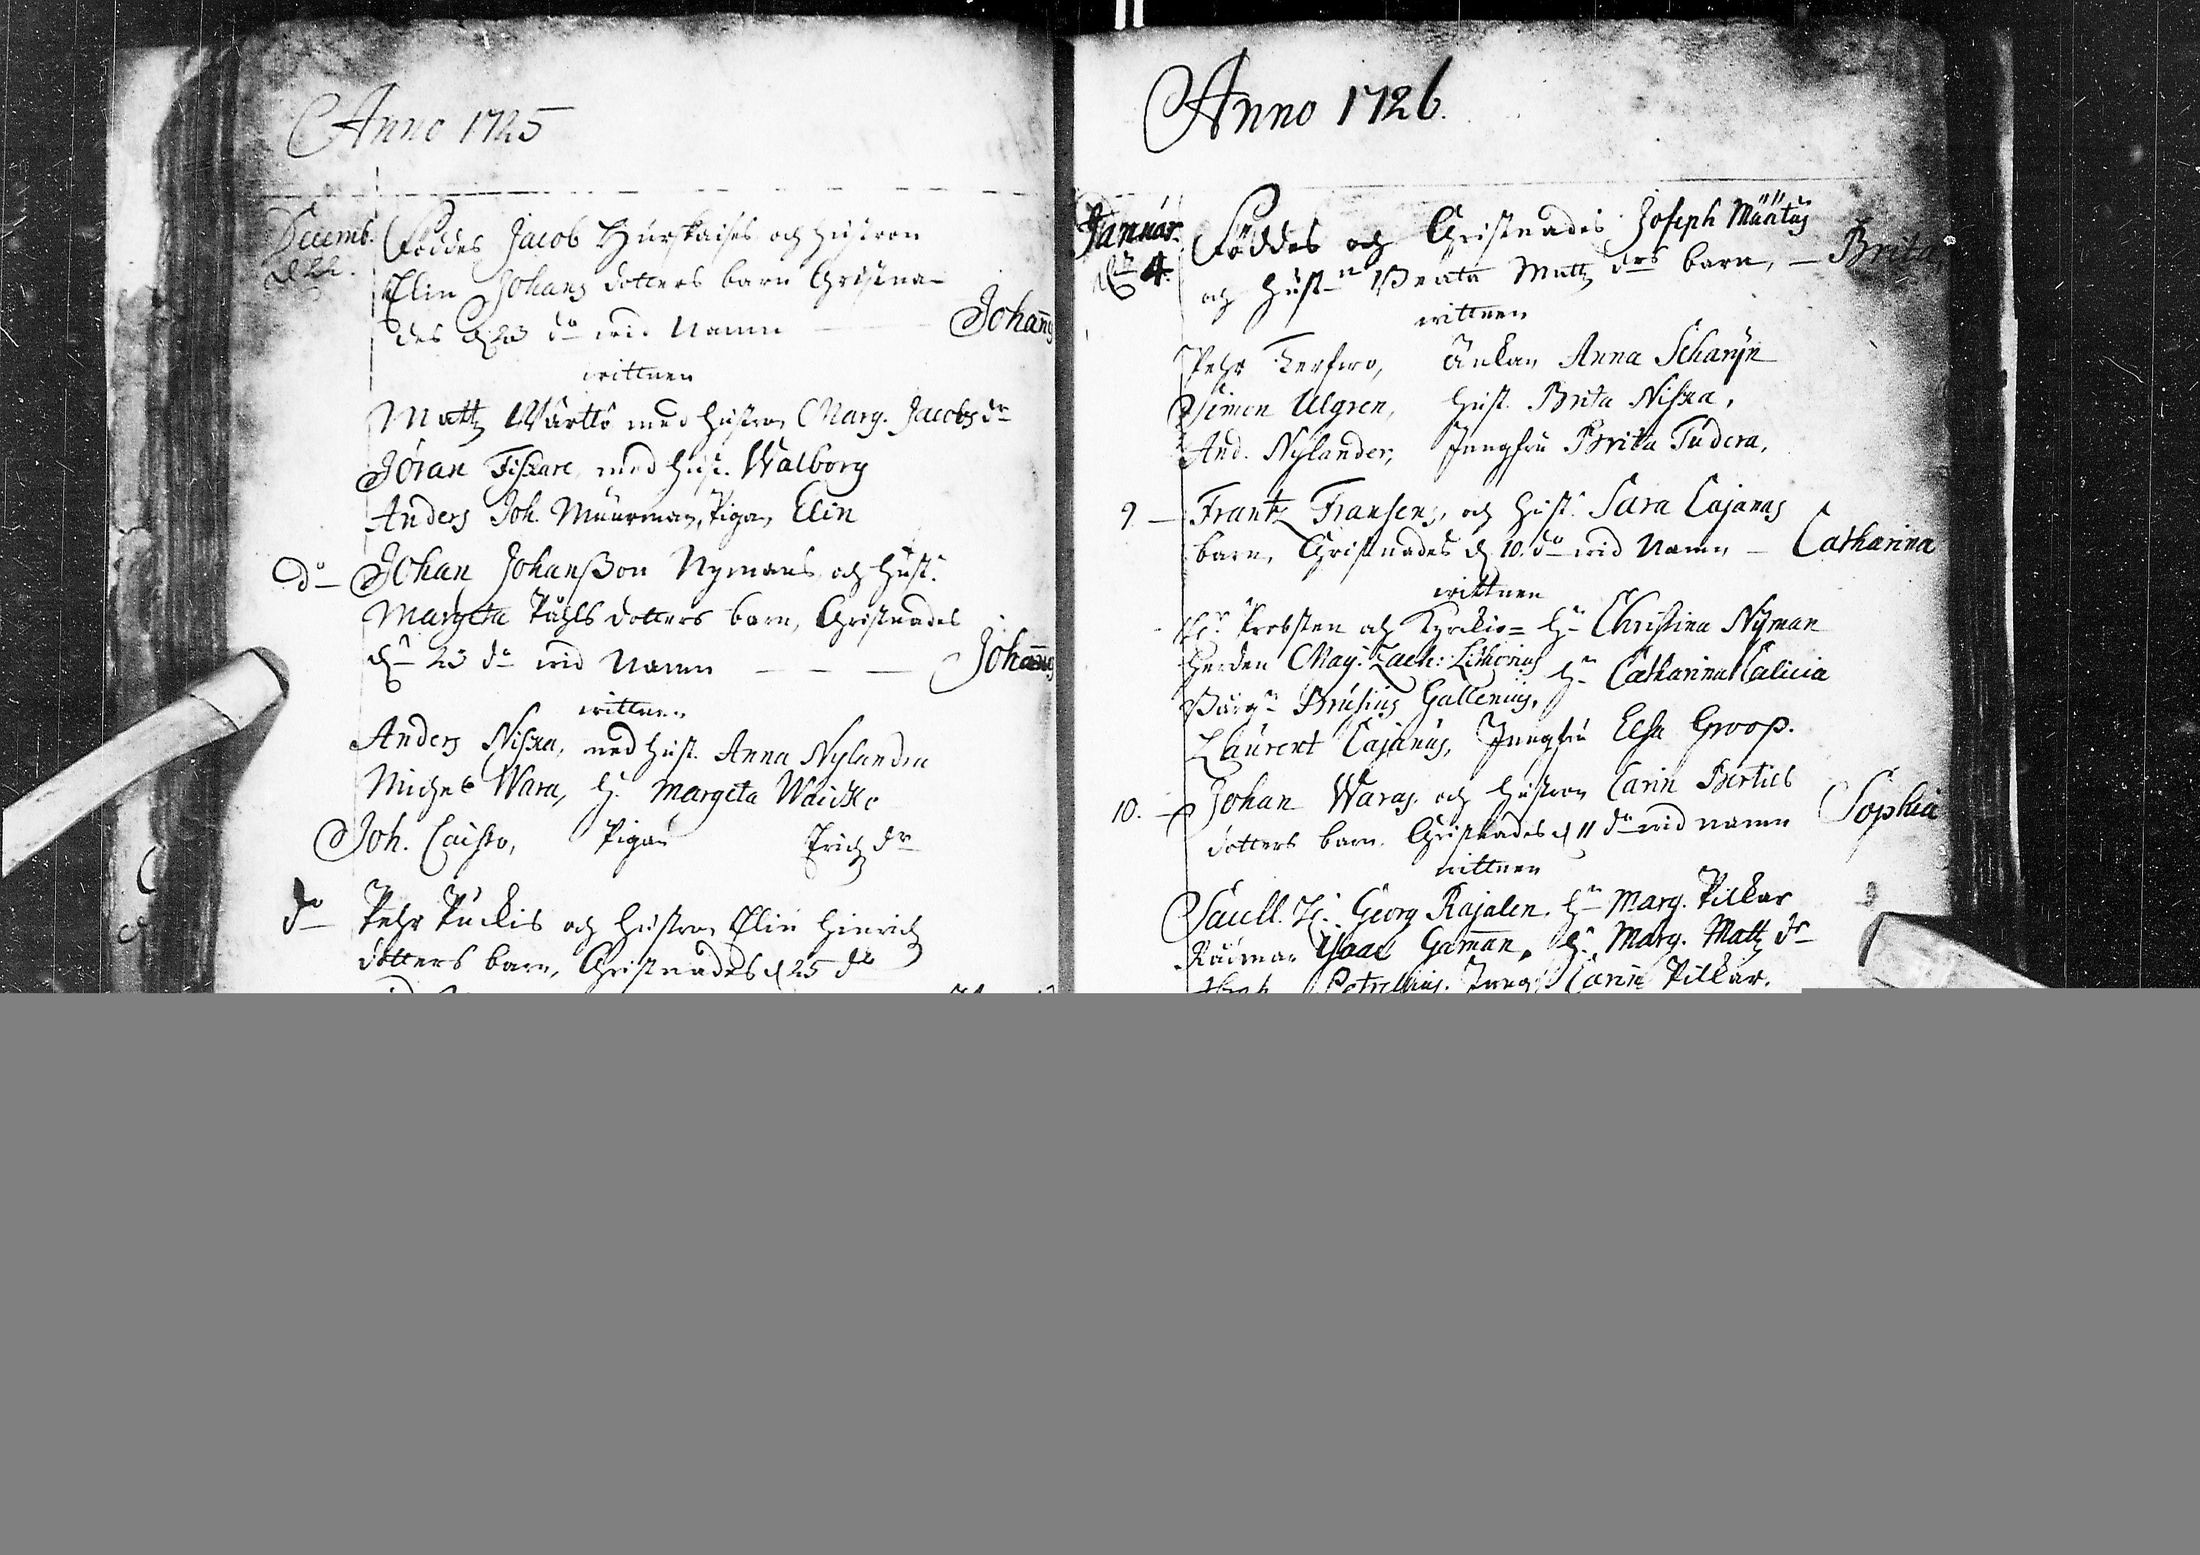 Anno 1725
Decemb. Föddes Jacob Hurskaises och hustron
d. 22. Elin Johans dotters barn Christna-
des d. 23 do wid Namn — Johannes
wittnen
Matz Wärttö med hustron Marg. Jacobs dr
Jöran Fiskare med hust. Walborg
Anders Joh. Muurman, Pigan Elin
do — Johan Johanßon Nymans och hust.
Margeta Påhls dotters barn, Christnades
dn 23 do wid Namn — — — Johannes
wittnen
Anders Niska, med hust. Anna Nylandra
Michel Wara, h. Margeta
Joh. Pigan Erich dr
do Pehr Puckis och hustron Elin Hinrich
dotters barn, Christnades d 25 do
Anno 1726.
Januar. Föddes och Christnades Joseph Määttäs
dn 4. och hustn Beata Matz drs barn, — Brita
wittnen
Pehr Änkan Anna Scharin
Simon Ulgren, hust. Brita Niska,
And. Nylander, Jungfru Brita Tudera,
9 — Frantz Fransens, och hust. Sara Cajanus
barn, Christnades d. 10. do wid Namn — Catharina
wittnen
Hr Probsten och Kyrckio= hn Christina Nyman
herden Mag. Zach: Lithovius hn Catharina Calicia
Burgn Brusius Gallenius,
Laurent Cajanus, Jungfru Elsa Groop.
10. — Johan Waras och hustron Carin Bertils
dotters barn. Christnades d 11 do wid namn Sophia
wittnen
Sacell. H. Georg Rajalen. hn Marg. Pilkar
Isaac Gamman, h. Marg. Matz dr
Petrellius. Jung. Carin Pilkar.